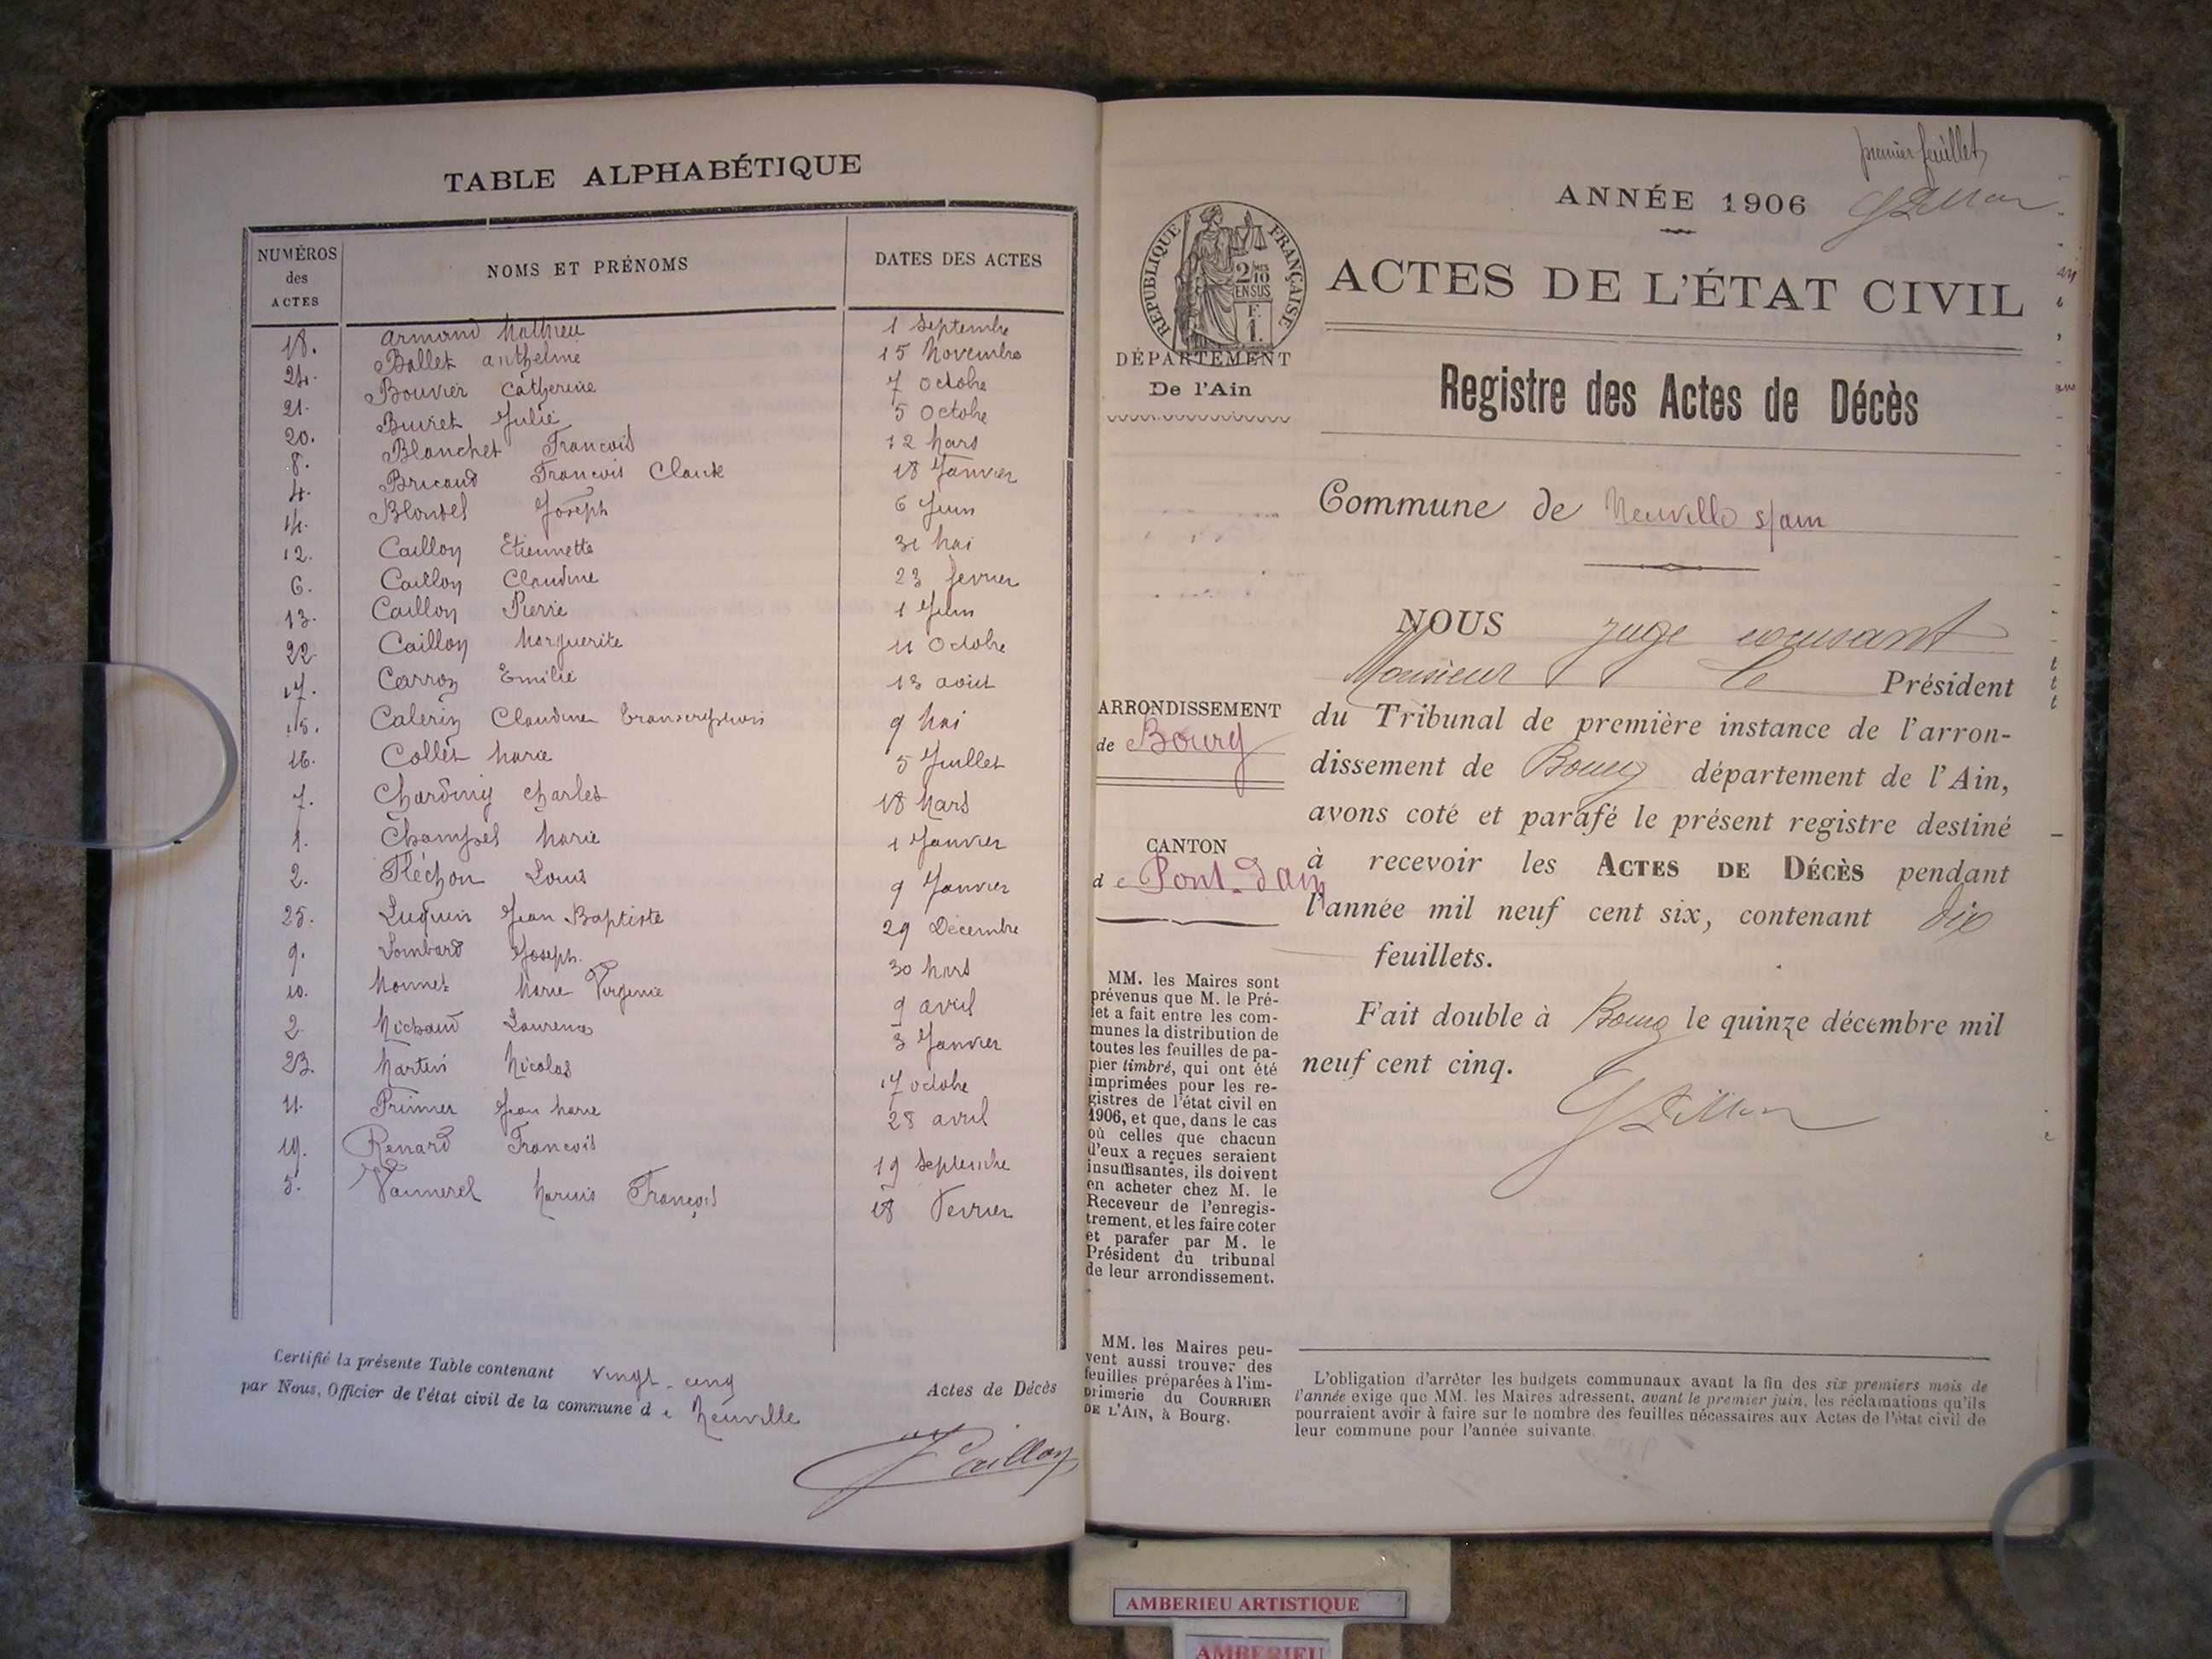 TABLE ALPHABÉTIQUE
NUMÉROS des ACTES
NOMS ET PRÉNOMS
DATES DES ACTES
18. Armand Mathieu 1 Septembre
24. Ballet Anthelme 15 Novembre
21. Bouvier Catherine 7 Octobre
20. Buiret Julie 5 Octobre
8. Blanchet Francois 12 Mars
4. Bricaud Francois Claude 18 Janvier
14. Blondel Joseph 6 Juin
12. Caillon Etiennette 31 Mai
6. Caillon Claudine 23 fevrier
13. Caillon Pierre 1 Juin
22. Caillon Marguerite 11 Octobre
17. Carron Emilie 13 aout
15. Calerin Claudine transcription 9 Mai
16. Collet Marie 5 Juillet
7. Chardiny Charles 18 Mars
1. Champel Marie 1 Janvier
2. Fléchon Louis 9 Janvier
25. Luquin Jean Baptiste 29 Décembre
9. Lombard Joseph. 30 Mars
10. Monnet Marie Virginie 9 avril
2. Michaud Laurence 3 Janvier
23. Martin Nicolas 17 octobre
11. Primer Jean Marie 28 avril
19. Renard Francois 19 Septembre
5. Vannerel Marius François 18 Fevrier
Certifié la présente Table contenant vingt-cinq Actes de Décès
par Nous, Officier de l'état civil de la commune de Neuville
Caillon
premier feuillet
ANNÉE 1906
RÉPUBLIQUE FRANÇAISE
2/10 EN SUS
F. 1.
ACTES DE L'ÉTAT CIVIL
DÉPARTEMENT
De l'Ain
Registre des Actes de Décès
Commune de Neuville s/ain
ARRONDISSEMENT
de Bourg
CANTON
de Pont-d'ain
MM. les Maires sont
prévenus que M. le Pré-
fet a fait entre les com-
munes la distribution de
toutes les feuilles de pa-
pier timbré, qui ont été
imprimées pour les re-
gistres de l'état civil en
1906, et que, dans le cas
où celles que chacun
d'eux a reçues seraient
insuffisantes, ils doivent
en acheter chez M. le
Receveur de l'enregis-
trement, et les faire coter
et parafer par M. le
Président du tribunal
de leur arrondissement.
MM. les Maires peu-
vent aussi trouver des
feuilles préparées à l'im-
primerie du COURRIER
DE L'AIN, à Bourg.
NOUS juge excusant
Monsieur le Président
du Tribunal de première instance de l'arron-
dissement de Bourg département de l'Ain,
avons coté et parafé le présent registre destiné
à recevoir les ACTES DE DÉCÈS pendant
l'année mil neuf cent six, contenant dix
feuillets.
Fait double à Bourg le quinze décembre mil
neuf cent cinq.
L'obligation d'arrêter les budgets communaux avant la fin des six premiers mois de
l'année exige que MM. les Maires adressent, avant le premier juin, les réclamations qu'ils
pourraient avoir à faire sur le nombre des feuilles nécessaires aux Actes de l'état civil de
leur commune pour l'année suivante.
AMBERIEU ARTISTIQUE
AMBERIEU